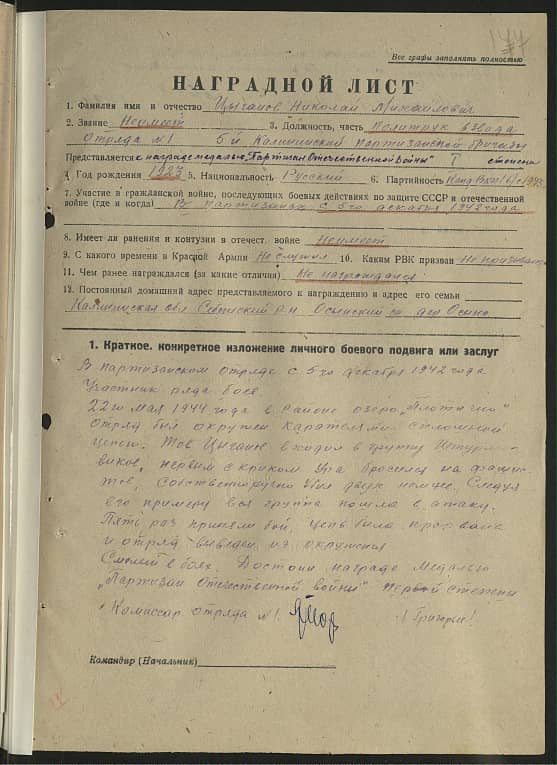 144
Все графы заполнять полностью
НАГРАДНОЙ ЛИСТ
1. Фамилия имя и отчество Цыганов Николай Михайлович
2. Звание Неимеет 3. Должность, часть Политрук взвода
Отряда №1 5й Калининской партизанской бригады
Представляется к награде медалью „Партизан Отечественной Войны" I степени
4 Год рождения 1923 5. Национальность Русский 6. Партийность Канд. ВКП(б) с 1943
7. Участие в гражданской войне, последующих боевых действиях по защите СССР и отечественной
войне (где и когда) В партизанах с 5го декабря 1942 года
8. Имеет ли ранения и контузии в отечест. войне Неимеет
9. С какого времени в Красной Армии Не служил 10. Каким РВК призван Не призывался
11. Чем ранее награждался (за какие отличия) Не награждался
12. Постоянный домашний адрес представляемого к награждению и адрес его семьи
Калининская обл Себежский р-н Осынский с/с дер Осыно
1. Краткое. конкретное изложение личного боевого подвига или заслуг
В партизанском отряде с 5го декабря 1942 года
Участник ряда боев.
22го мая 1944 года в районе озера „Плотично"
Отряд был окружен карателями сплошной
цепью. Тов Цыганов входил в группу Штурмо-
виков, первым с криком Ура бросился на фашис-
тов, собственоручно убил двух немцев. Следуя
его примеру вся группа пошла в атаку.
Пять раз приняли бой, цепь была прорвана
и отряд выведен из окружения
Смелый в боях. Достоин награде Медалью
„Партизан Отечественной войны" первой степени
Комиссар отряда №1. /Григорьев/
Командир (Начальник)